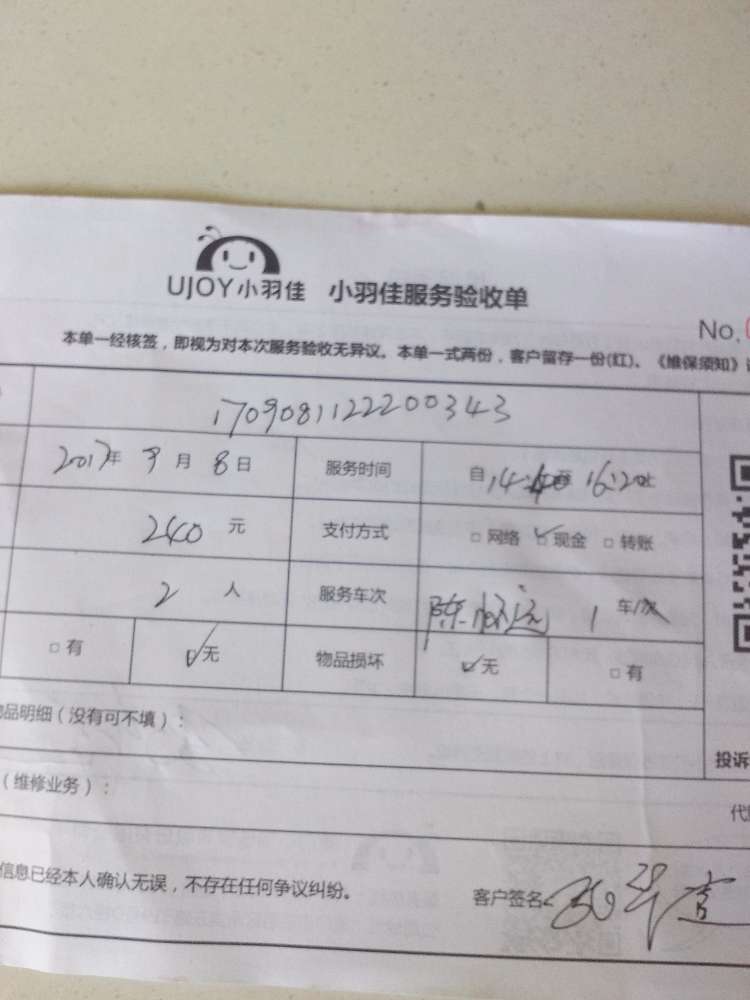 UJOY小羽佳 小羽佳服务验收单
No.
本单一经核签，即视为对本次服务验收无异议。本单一式两份，客户留存一份(红)、《维保须知》
1709081122200343
2017年 9月 8日 服务时间 自14: 至 16:20
240元 支付方式 □网络 ☑现金 □转账
2人 服务车次 陈 1 车/次
□有 ☑无 物品损坏 ☑无 □有
品明细（没有可不填）：
投诉
（维修业务）：
信息已经本人确认无误，不存在任何争议纠纷。 客户签名